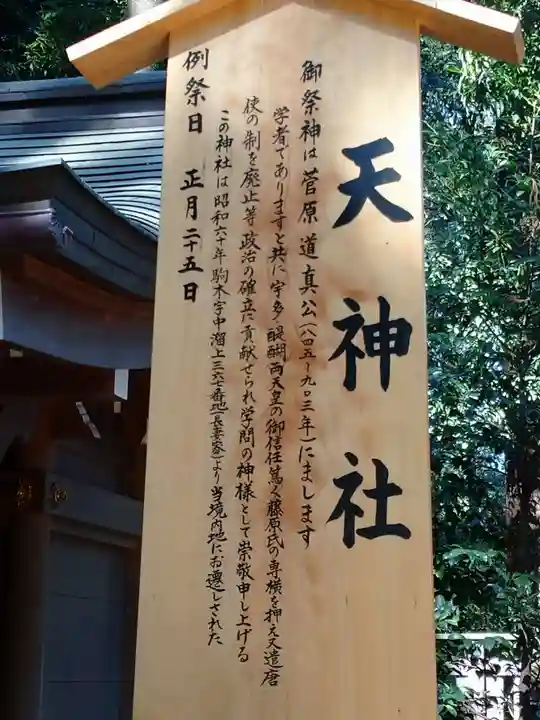 天神社
御祭神は菅原道真公(八四五~九〇三年)にまします
学者でありますと共に宇多醍醐両天皇の御信任篤く藤原氏の専横を押え又遣唐
使の制を廃止等政治の確立に貢献せられ学問の神様として崇敬申し上げる
この神社は昭和六十年駒木字中溜上三六七番地(長妻家)より当境内地にお遷しされた
例祭日 正月二十五日